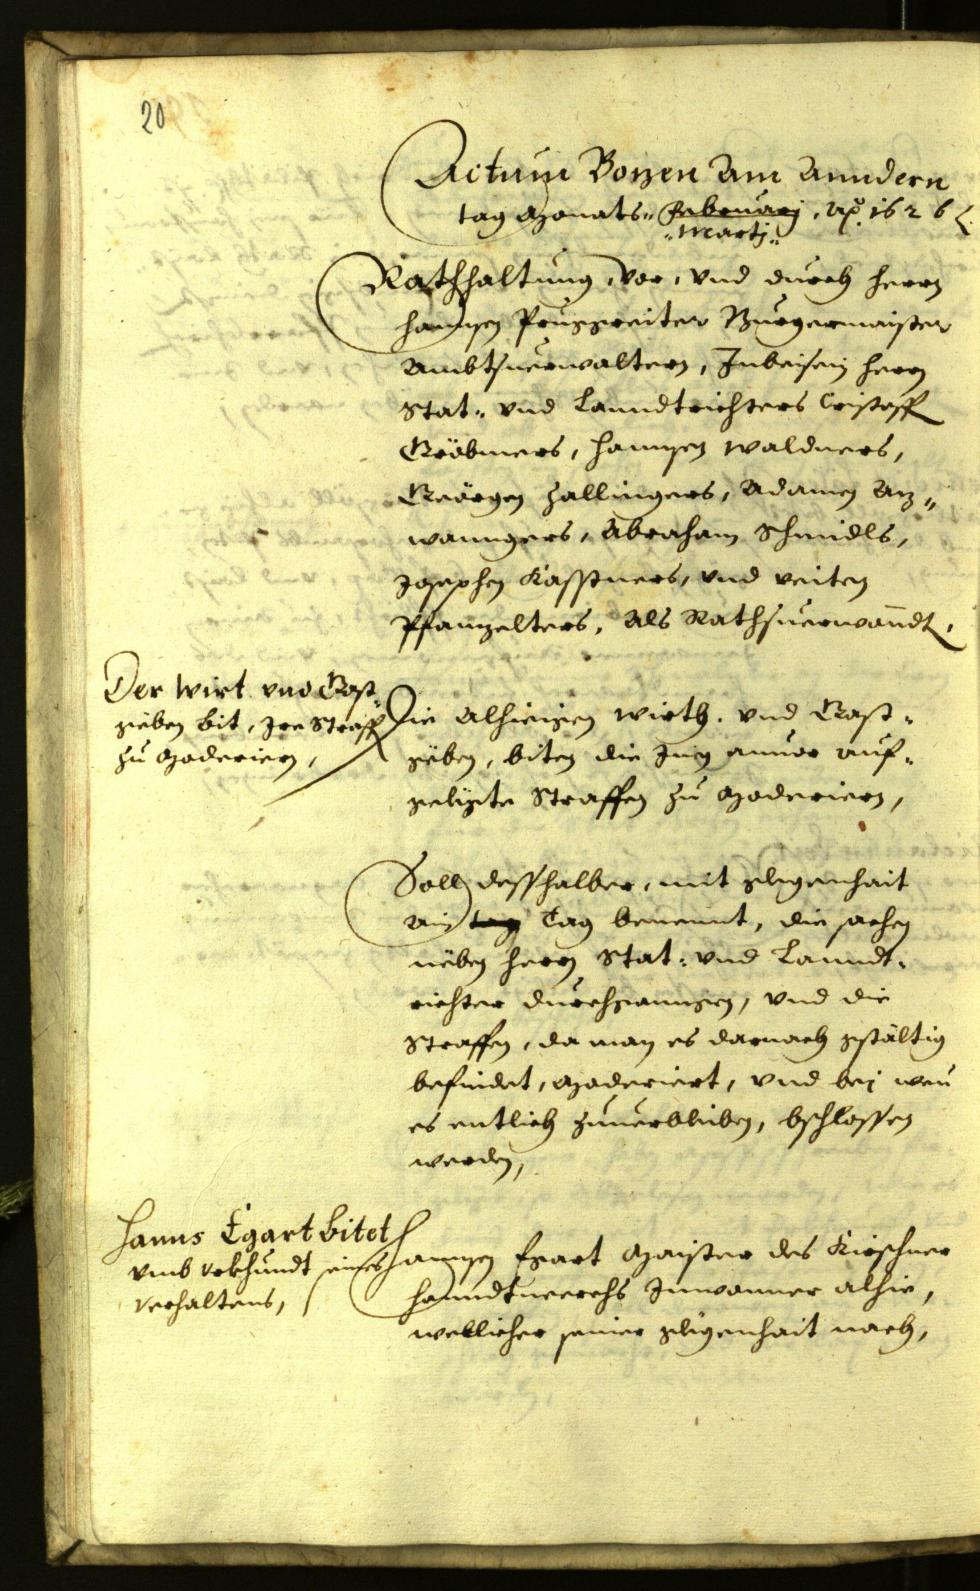 20
Actum Bozen Am Anndern
tag Monats Februarj, Ao. 1626
Martj
Rathhaltung, vor, und durch herrn
hannsen Pruggreiter Burgermaister
Ambtsverwaltern, Inbeisein herrn
Stat- und Lanndtrichters Cristoff
Gröbmers, hannsen Waldners,
Geörgen Zallingers, Adamen Az-
wanngers, Abraham Schmidls,
Josephen Kasstners, und veiten
Pfanzelters, als Rathsverwandt,
Der Wirt und Gast
geben bit, Ire Straff
zu Moderiern,
Die Alhieigen Wirth- und Gast-
geben, biten die Inen annor auf-
gelegte Straffen zu Moderiern,
Soll desshalber, mit glegenhait
ain tag Tag benennt, die sachen
neben herrn Stat- und Lanndt-
richter durchganngen, und die
Straffen, da man es darnach gstältig
befindet, Moderiert, und bej wen
es entlich zuverbleiben, bschlossen
werden,
Hanns Egart bitet
umb Urkhundt seines
verhaltens,
Hannsen Egart Maister des Kirschner
hanndtwerchs Innwonner alhie,
wellicher seiner glegenhait nach,